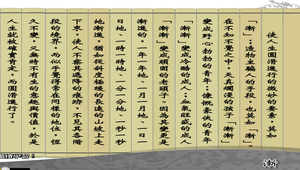 使人生圓滑進行的微妙的要素，莫如
「漸」；造物主騙人的手段，也莫如「漸」。
在不知不覺之中，天真爛漫的孩子「漸漸」
變成野心勃勃的青年；慷慨豪俠的青年
「漸漸」變成冷酷的成人；血氣旺盛的成人
「漸漸」變成頑固的老頭子。因為其變更是
漸進的，一年一年地、一月一月地、一日一
日地、一時一時地、一分一分地、一秒一秒
地漸進，猶如從斜度極緩的長遠的山坡上走
下來，使人不察其遞降的痕跡，不見其各階
段的境界，而似乎覺得常在同樣的地位，恆
久不變，又無時不有生的意趣與價值，於是
人生就被確實肯定，而圓滑進行了。
漸